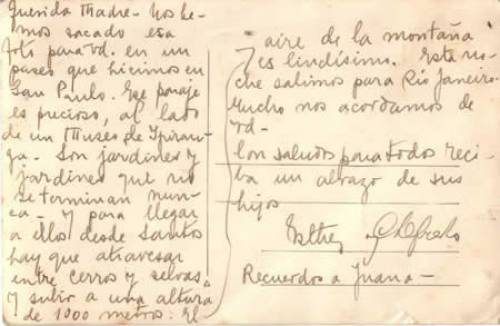 Querida Madre- Nos he-
mos sacado esa
foto para Vd. en un
paseo que hicimos en
San Paulo. Ese paraje
es precioso, al lado
de un Museo de Ipiran-
ga. Son jardines y
jardines que no
se terminan nun-
ca. Y para llegar
a ellos desde Santos
hay que atravesar
entre cerros y selvas,
y subir a una altura
de 1000 metros. El
aire de la montaña
es lindísimo. Esta no-
che salimos para Río Janeiro.
Mucho nos acordamos de
Vd-
Con saludos para todos reci-
ba un abrazo de sus
hijos
Esther y Alfredo
Recuerdos a Juana-